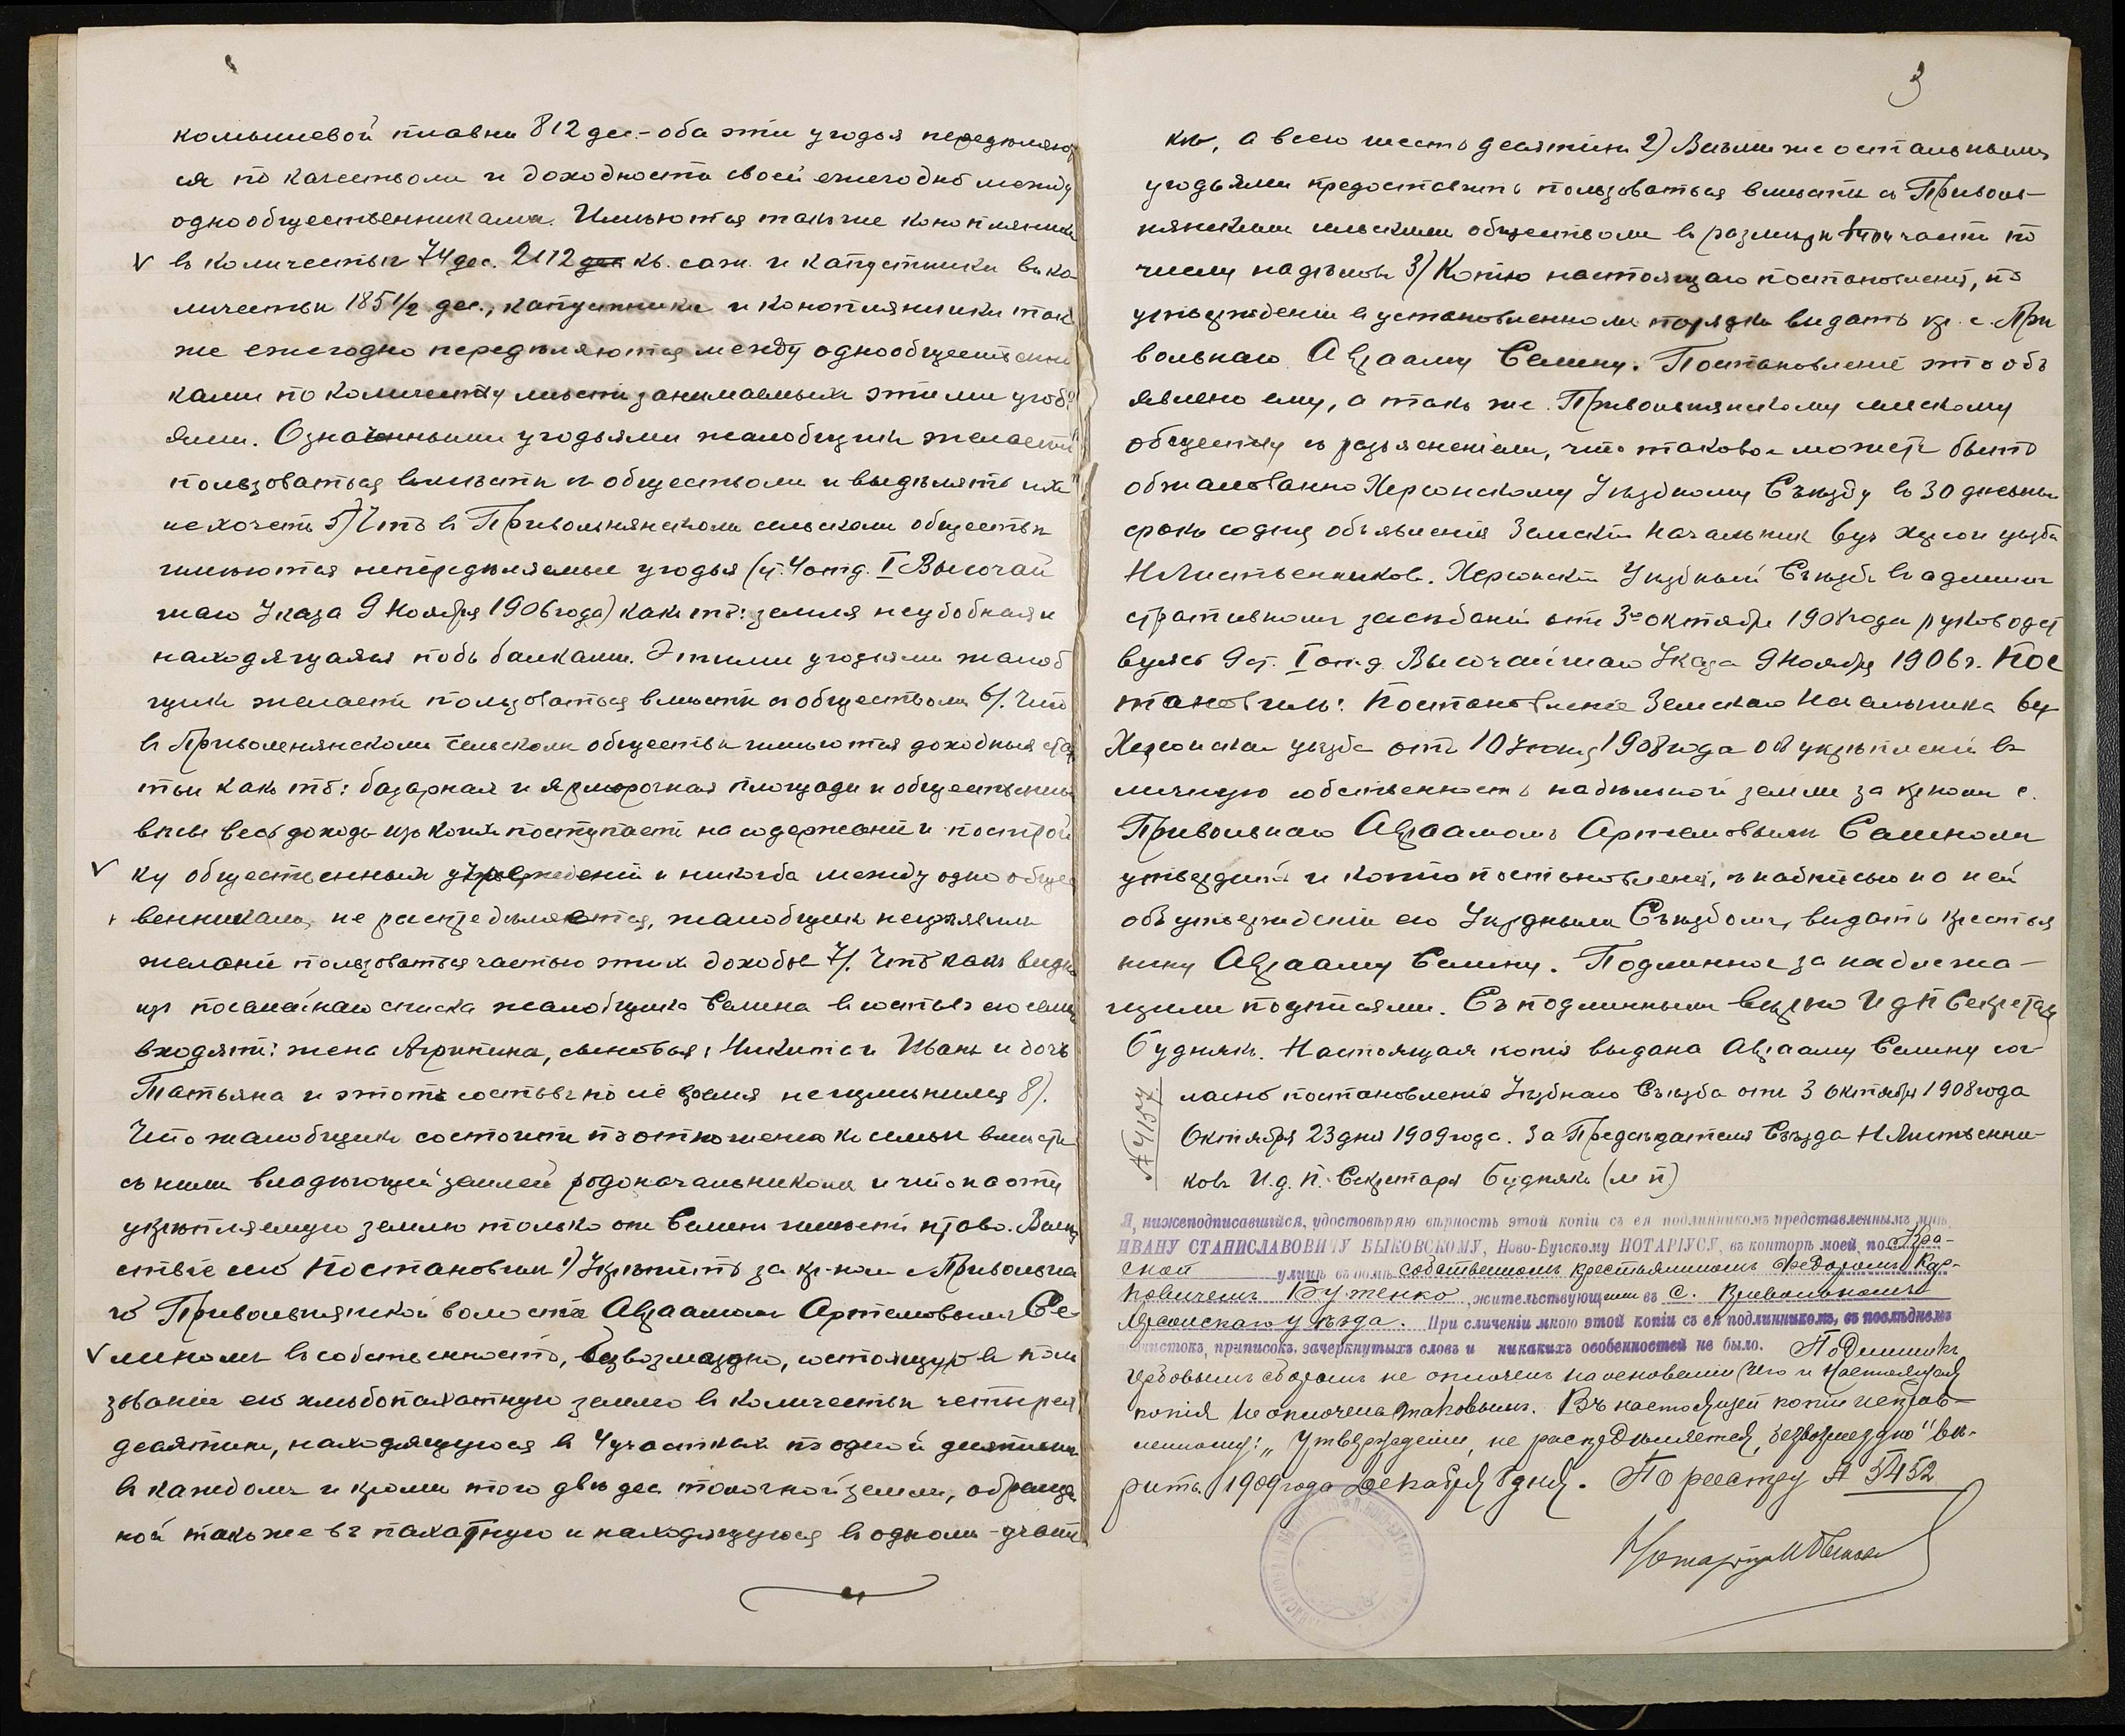 комышевой плавни 812 дес.- оба эти угодья передѣляют
ся по качествомъ и доходности своей ежегодно между
однообщественниками. Имѣются также конопляники
въ количествѣ 74 дес. 2112 дес кв. саж. и капустники въ ко
личествѣ 185 1/2 дес., капустники и конопляники так
же ежегодно передѣляются между однообщественни
ками по количеству мѣстъ занимаемыхъ этими угодь
ями. Означенными угодьями жалобщикъ желаетъ
пользоваться вмѣстѣ съ обществомъ и выдѣлять ихъ
не хочетъ 5) Что въ Привольнянскомъ сельскомъ обществѣ
имѣются непередѣляемые угодья (ст. 4 отд. I Высочай
шаго Указа 9 Ноября 1906 года) какъ то: земля неудобная и
находящаяся подъ балками. Этими угодьями жалоб
щикъ желаетъ пользоваться вмѣстѣ съ обществомъ 6/. Что
въ Привольнянскомъ сельскомъ обществѣ имѣются доходныя ста
тьи какъ то: базарная и ярморочная площади и общественные
вѣсы весь доходъ изъ коихъ поступаетъ на содержаніе и построй
ку общественныхъ учрежденій и никогда между однообщес
венниками не распредѣляется, жалобщикъ не изъявилъ
желаніе пользоваться частью этихъ доходов 7/. Что какъ видно
изъ посемейнаго списка жалобщика Селина въ составъ его семьи
входятъ: жена Агрипина, сыновья: Никита и Иванъ и дочь
Татьяна и этотъ составъ по сіе время не измѣнился 8).
Что жалобщикъ состоитъ по отношенію къ семьи вмѣстѣ
съ нимъ владѣющей землей родоначальникомъ и что на эту
укрѣпляемую землю только онъ Селинъ имѣетъ право. Вслѣд
ствіе сего Постановилъ 1) Укрѣпить за кр-номъ с. Привольна
го Привольнянской волости Авраамомъ Артемовымъ Се-
линомъ въ собственность, безвозмездно, состоящую въ поль
зованіи его хлѣбопахатную землю въ количествѣ четырехъ
десятинъ, находящуюся въ 4 участкахъ по одной десятинѣ
въ каждомъ и кромѣ того двѣ дес толочной земли, обращен
ной также въ пахатную и находящуюся въ одномъ участ
3
кѣ, а всего шесть десятинъ 2) Всѣми же остальными
угодьями предоставить пользоваться вмѣстѣ съ Приволь-
нянскимъ сельскимъ обществомъ въ размѣрѣ части по
числу надѣловъ 3) Копію настоящаго постановленія, по
утвержденіи въ установленномъ порядкѣ выдать кр. с. При
вольнаго Аврааму Селину. Постановленіе это объ
явлено ему, а такъ же Привольнянскому сельскому
обществу съ разъясненіемъ, что таковое можетъ быть
обжаловано Херсонскому Уѣздному Съѣзду въ 30 дневный
срокъ со дня объявленія Земскій Начальник 6 уч Херсон уѣзда
Н Листвѣнниковъ. Херсонскій Уѣздный Съѣздъ въ админи
стративномъ засѣданіи отъ 3го октября 1908 года руководст
вуясь 9 ст. I отд. Высочайшаго Указа 9 Ноября 1906 г. Пос
тановилъ: Постановленіе Земскаго Начальника 6 уч
Херсонскаго уѣзда отъ 10 Іюня 1908 года объ укрѣпленіи въ
личную собственность надѣльной земли за кр-номъ с.
Привольнаго Авраамомъ Артемовымъ Селиномъ
утвердить и копію постановленія, съ надписью на ней
объ утвержденіи его Уѣзднымъ Съѣздомъ, выдать крестья
нину Аврааму Селину. Подлинное за надлежа-
щими подписями. Съ подлиннымъ вѣрно И д п Секретаря
Буднякъ. Настоящая копія выдана Аврааму Селину сог
ласно постановленія Уѣзднаго Съѣзда отъ 3 Октября 1908 года
№ 4157
Октября 23 дня 1909 года. За Предсѣдателя Съѣзда Н Листвѣнни-
ковъ И.д. п. Секретаря Буднякъ (м п)
Я, нижеподписавшійся, удостовѣряю вѣрность этой копіи съ ея подлинникомъ представленнымъ мнѣ,
ИВАНУ СТАНИСЛАВОВИЧУ БЫКОВСКОМУ, Ново-Бугскому НОТАРІУСУ, въ конторѣ моей, по
ской улицѣ въ домѣ собственномъ крестьяниномъ Федоромъ Кар-
повичемъ Бутенко, жительствующимъ въ с. Привольномъ
Херсонскаго уѣзда. При сличеніи мною этой копіи съ ея подлинникомъ, въ послѣднемъ
подчистокъ, приписокъ, зачеркнутыхъ словъ и никакихъ особенностей не было. Подлинникъ
гербовымъ сборомъ не оплоченъ на основаніи чего и настоящая
копія не оплочена таковымъ. Въ настоящей копіи исправ-
ленному: „Утвержденіи, не распредѣляется, безвозмездно" вѣ-
рить. 1909 года Декабря 8 дня. По реестру № 5452
Нотаріусъ И Быковскій